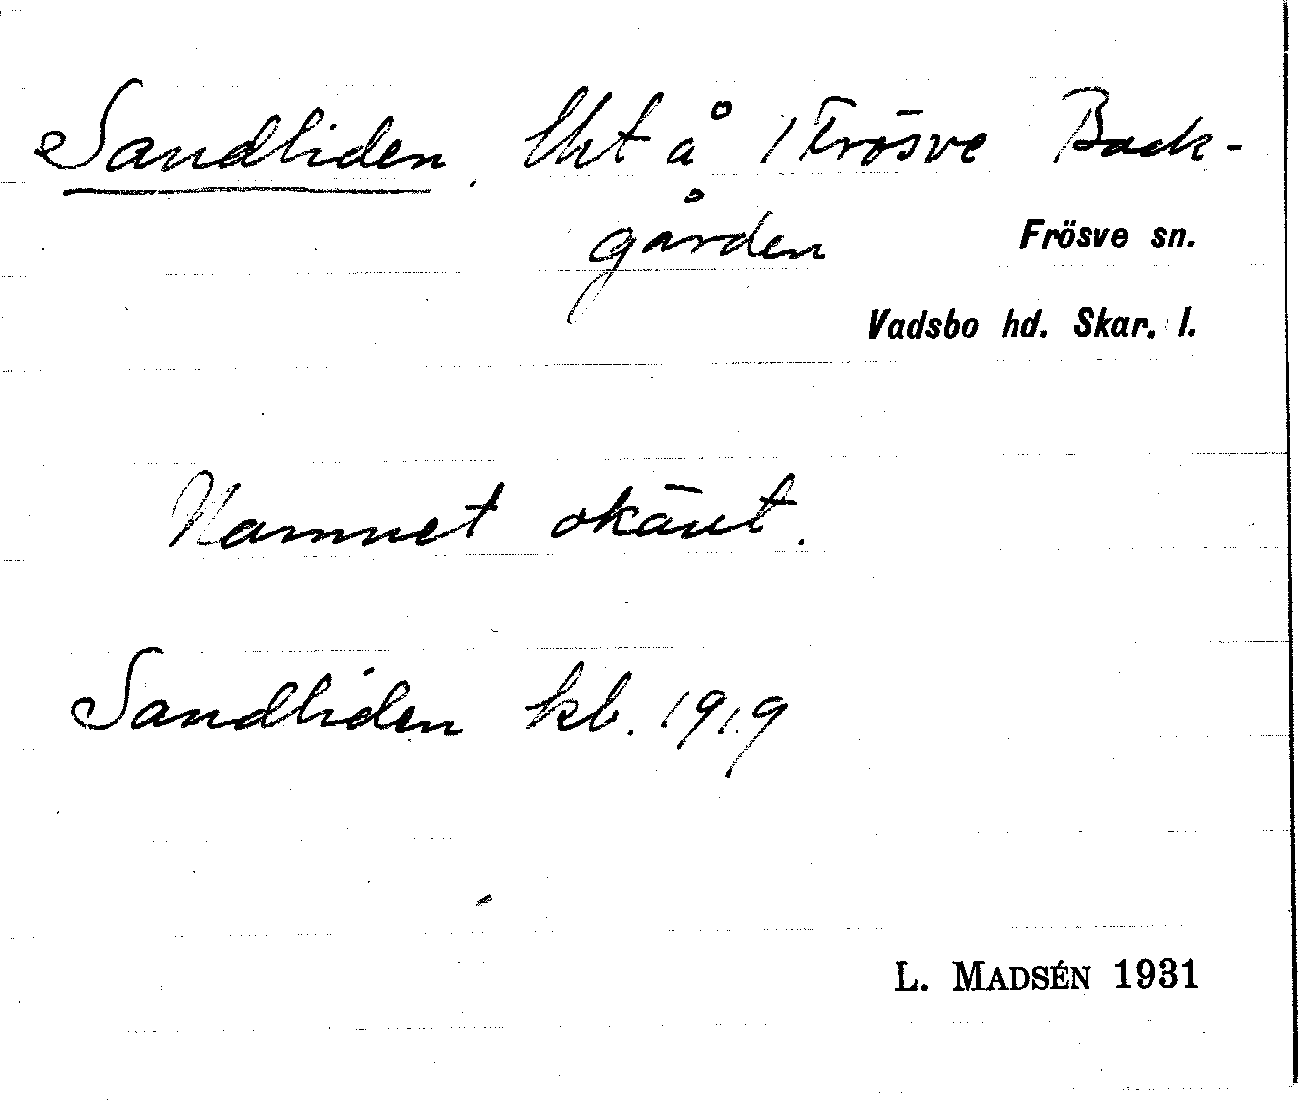 Sandliden, lht å 1 Frösve Back-
gården
Frösve sn.
Vadsbo hd. Skar. l.
Namnet okänt.
Sandliden kb. 1919
L. MADSÉN 1931